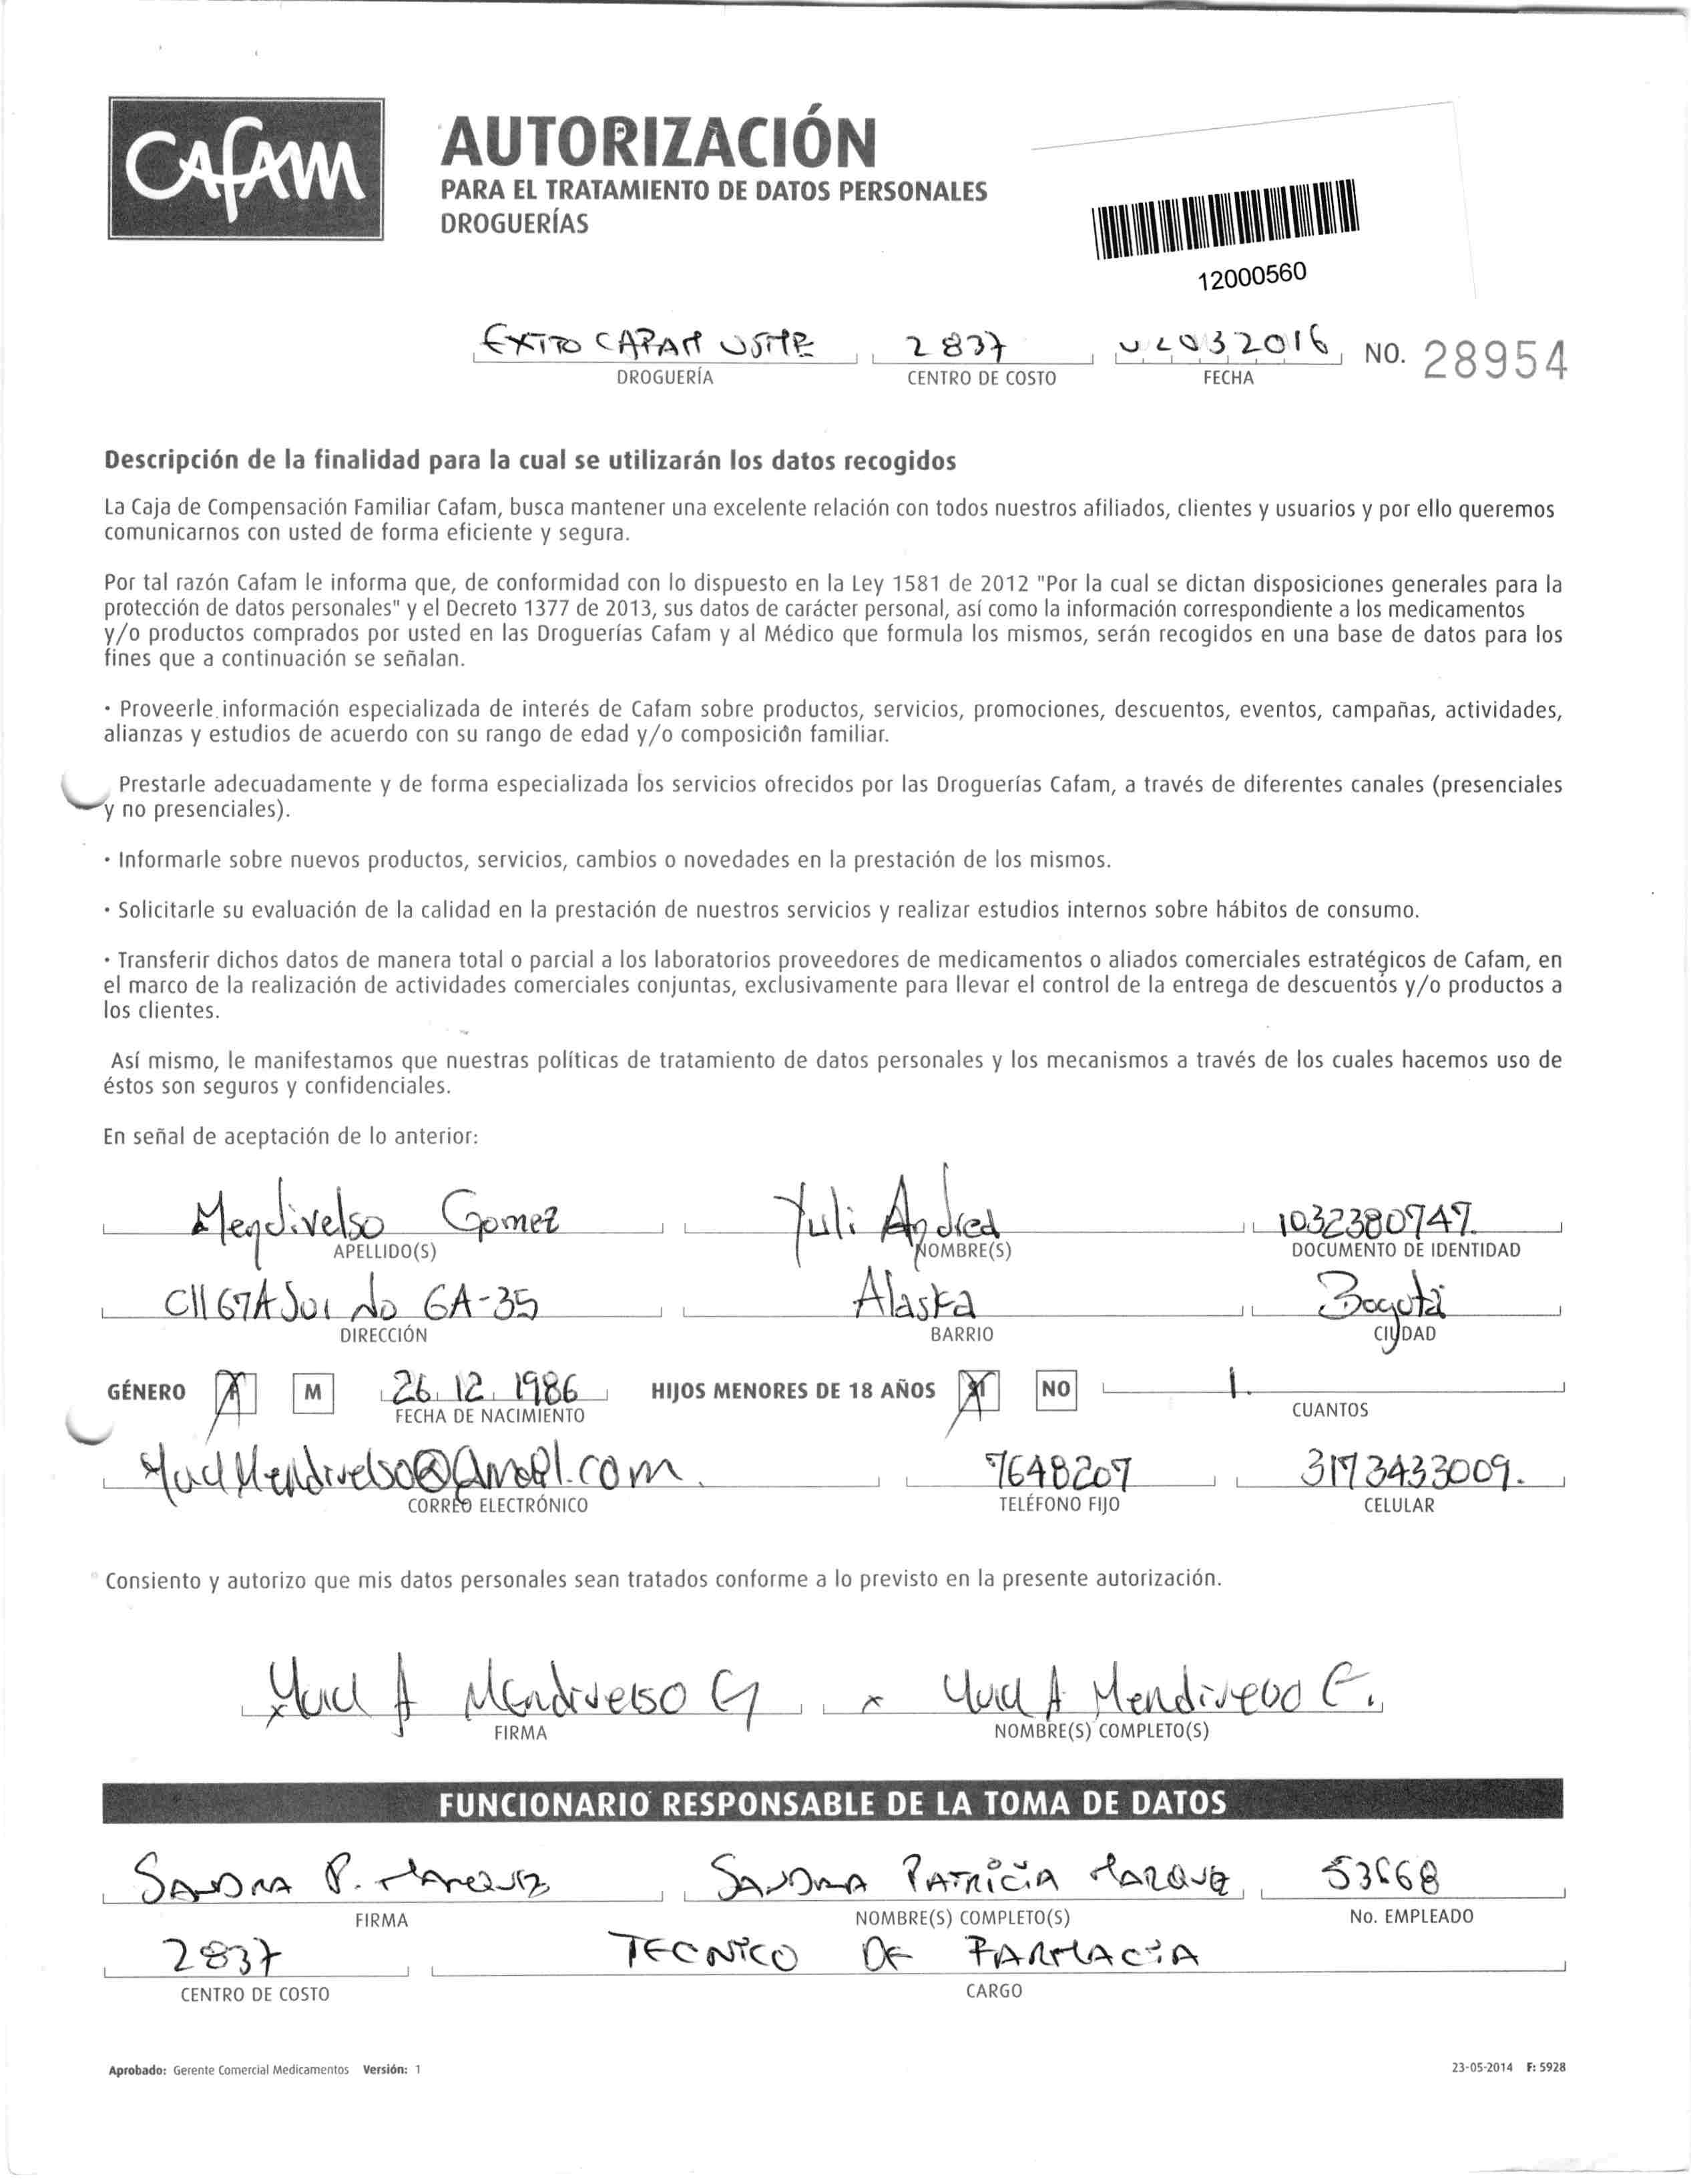 CAFAM
AUTORIZACIÓN
PARA EL TRATAMIENTO DE DATOS PERSONALES
DROGUERÍAS
12000560
EXITO CAFAM USME 2837 032016 NO. 28954
DROGUERÍA CENTRO DE COSTO FECHA
Descripción de la finalidad para la cual se utilizarán los datos recogidos
La Caja de Compensación Familiar Cafam, busca mantener una excelente relación con todos nuestros afiliados, clientes y usuarios y por ello queremos
comunicarnos con usted de forma eficiente y segura.
Por tal razón Cafam le informa que, de conformidad con lo dispuesto en la Ley 1581 de 2012 "Por la cual se dictan disposiciones generales para la
protección de datos personales" y el Decreto 1377 de 2013, sus datos de carácter personal, así como la información correspondiente a los medicamentos
y/o productos comprados por usted en las Droguerías Cafam y al Médico que formula los mismos, serán recogidos en una base de datos para los
fines que a continuación se señalan.
· Proveerle información especializada de interés de Cafam sobre productos, servicios, promociones, descuentos, eventos, campañas, actividades,
alianzas y estudios de acuerdo con su rango de edad y/o composición familiar.
Prestarle adecuadamente y de forma especializada los servicios ofrecidos por las Droguerías Cafam, a través de diferentes canales (presenciales
y no presenciales).
· Informarle sobre nuevos productos, servicios, cambios o novedades en la prestación de los mismos.
· Solicitarle su evaluación de la calidad en la prestación de nuestros servicios y realizar estudios internos sobre hábitos de consumo.
· Transferir dichos datos de manera total o parcial a los laboratorios proveedores de medicamentos o aliados comerciales estratégicos de Cafam, en
el marco de la realización de actividades comerciales conjuntas, exclusivamente para llevar el control de la entrega de descuentos y/o productos a
los clientes.
Así mismo, le manifestamos que nuestras políticas de tratamiento de datos personales y los mecanismos a través de los cuales hacemos uso de
éstos son seguros y confidenciales.
En señal de aceptación de lo anterior:
Mendivelso Gomez Yuli Andrea 1032380747.
APELLIDO(S) NOMBRE(S) DOCUMENTO DE IDENTIDAD
Cll 67A Sur No 6A-35 Alaska Bogotá
DIRECCIÓN BARRIO CIUDAD
GÉNERO M 26 12 1986 HIJOS MENORES DE 18 AÑOS SI NO 1.
FECHA DE NACIMIENTO CUANTOS
7648207 3173433009.
CORREO ELECTRÓNICO TELÉFONO FIJO CELULAR
Consiento y autorizo que mis datos personales sean tratados conforme a lo previsto en la presente autorización.
x A Mendivelso G x A Mendivelso G.
FIRMA NOMBRE(S) COMPLETO(S)
FUNCIONARIO RESPONSABLE DE LA TOMA DE DATOS
SANDRA P. SANDRA PATRICIA 53668
FIRMA NOMBRE(S) COMPLETO(S) No. EMPLEADO
2837 TECNICO DE FARMACIA
CENTRO DE COSTO CARGO
Aprobado: Gerente Comercial Medicamentos Versión: 1 23-05-2014 F: 5928